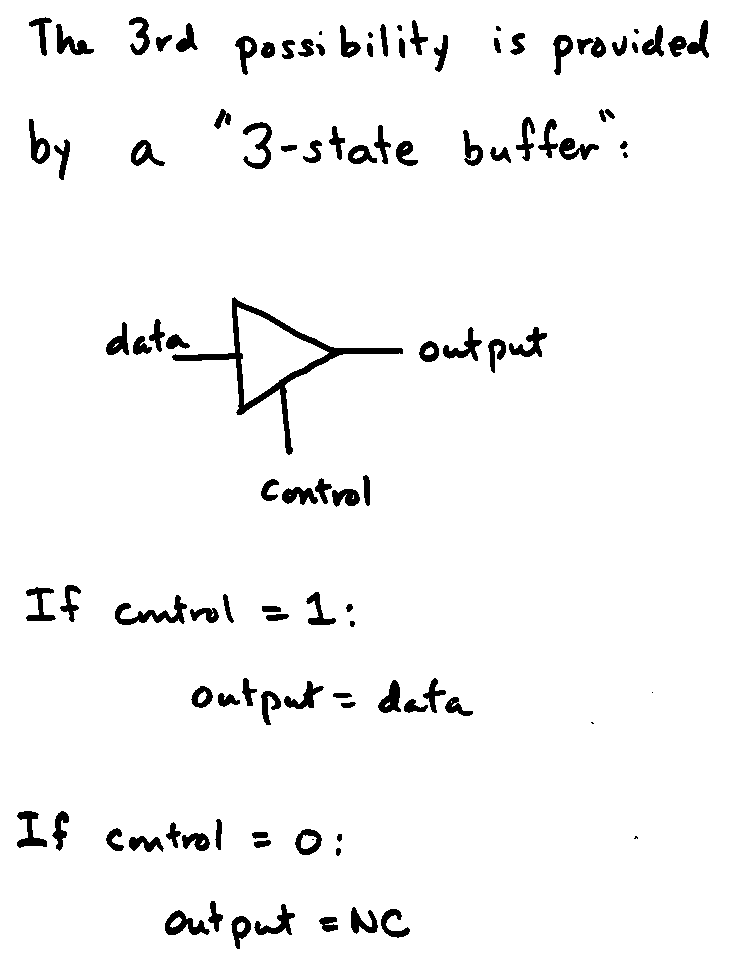 The 3rd possibility is provided
by a "3-state buffer":
data
output
control
If control = 1:
output = data
If control = 0:
output = NC